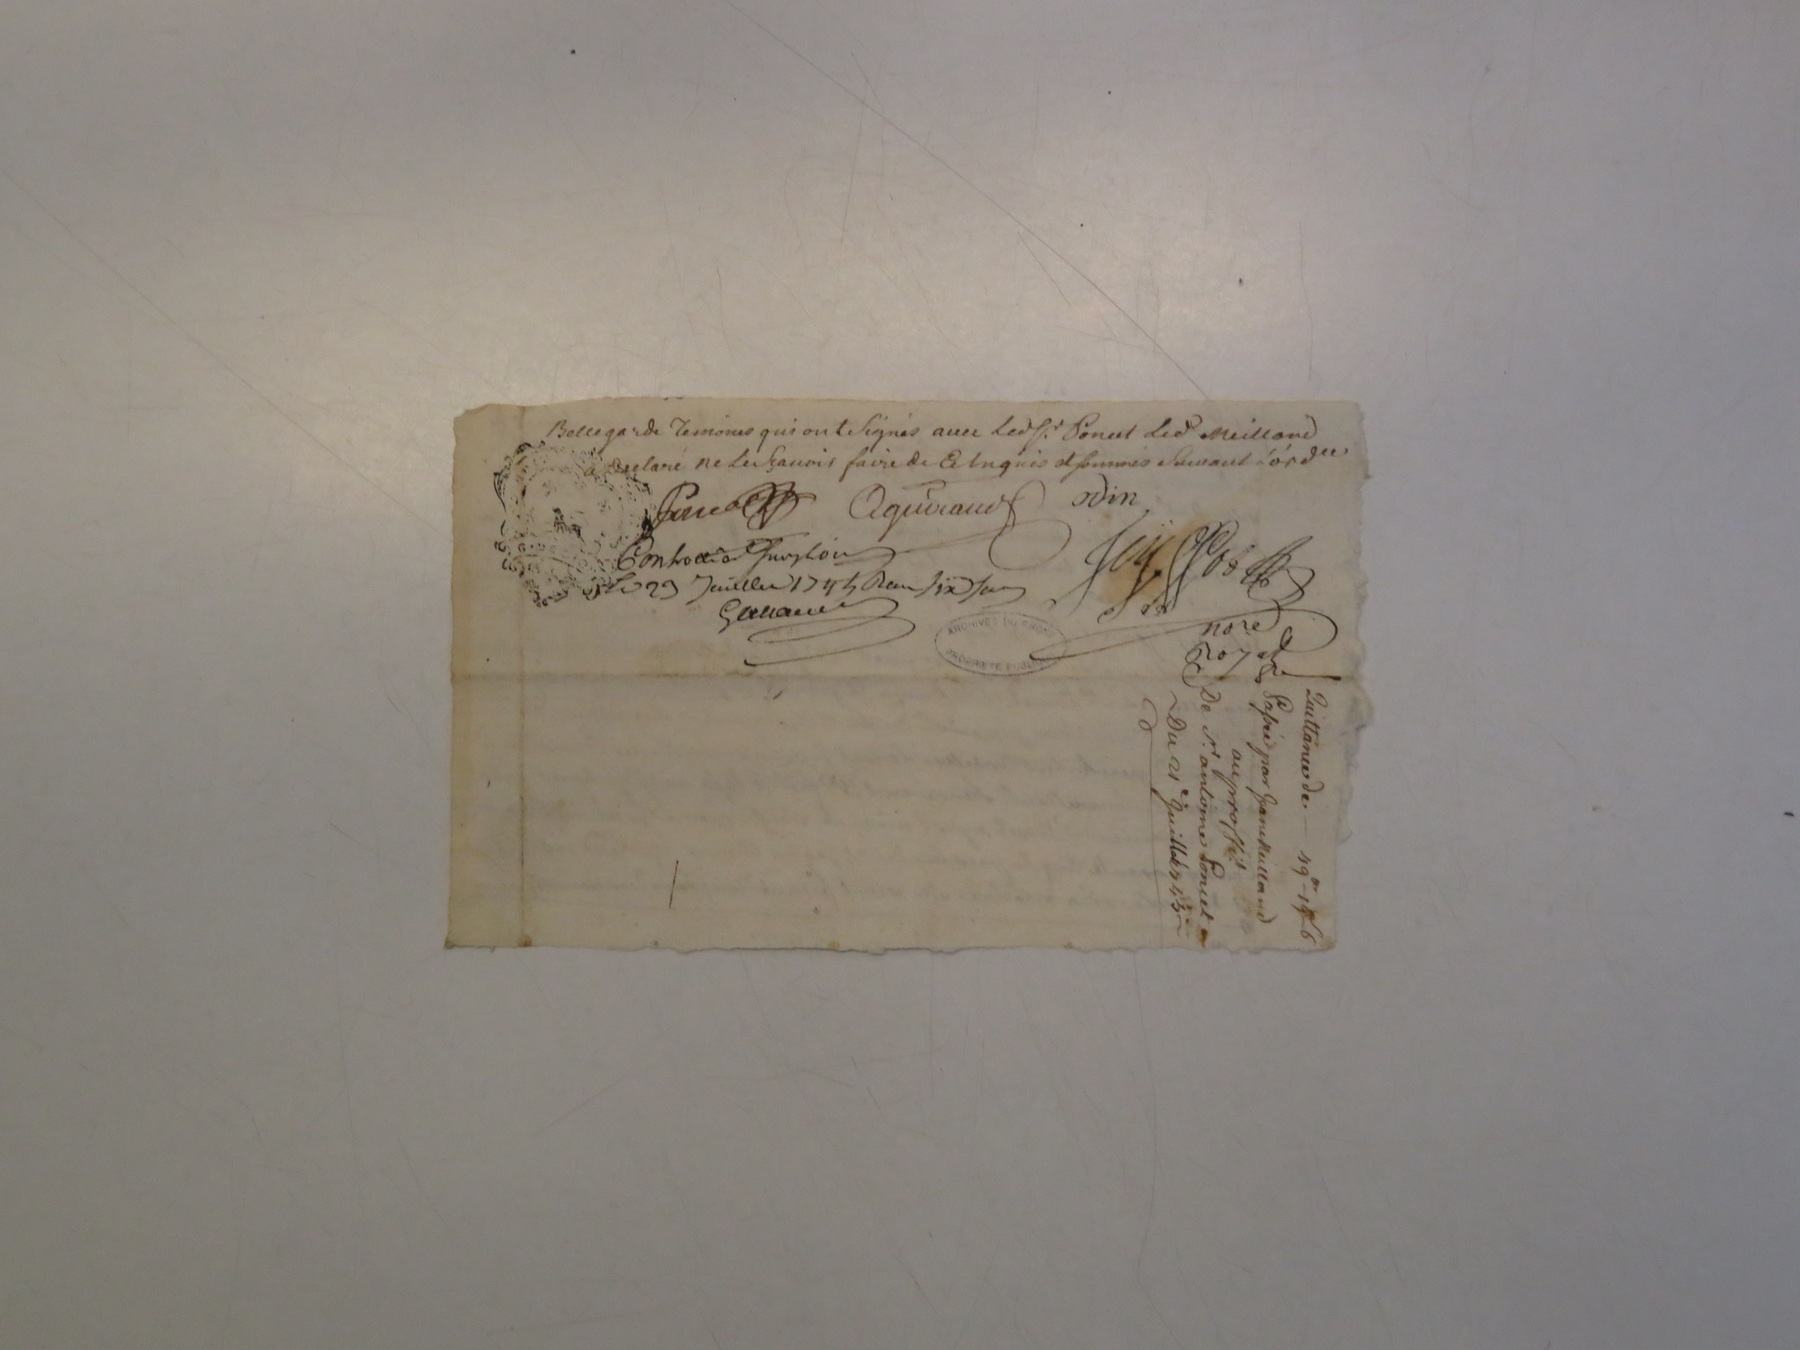 Bellegarde Temoins qui ont Signés avec Led. Sr. Poncet Led. Meilland
a declaré ne Le sçavoir faire de Ce Enquis et sommés Suivant L'ordce
Poncet Aguiraud odin
Controllé a
Le 29 Juillet 1745 six
ARCHIVES DU RHONE
PROPRIETE PUBLIQUE
nore
Royal
Quittance de — 49
Passé par Jean Meilland
au proffit
De Sr. antoine Poncet
Du 21e Juillet 1745